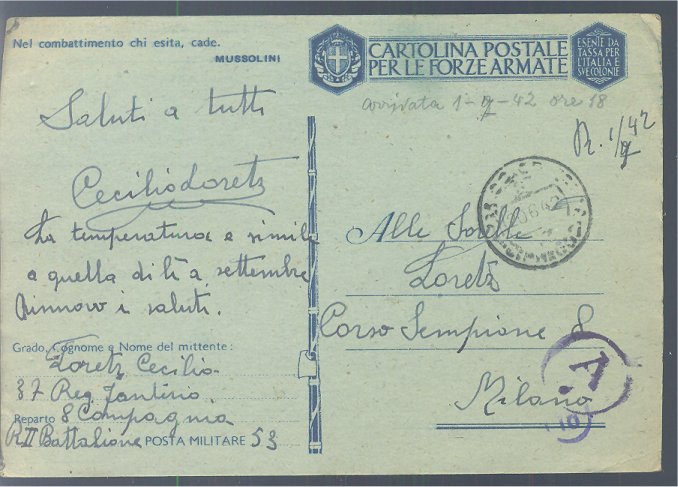 Nel combattimento chi esita, cade.
MUSSOLINI
CARTOLINA POSTALE
PER LE FORZE ARMATE
ESENTE DA
TASSA PER
L'ITALIA E
SVE COLONIE
arrivata 1-9-42 ore 18
R. 1/9 42
Saluti a tutti
Cecilio Loretz
La temperatura e simile
a quella di lì a settembre
Rinnovo i saluti.
Alle Sorelle
Loretz
Corso Sempione 8
Milano
Grado, Cognome e Nome del mittente:
Loretz Cecilio
37 Reg. Fanteria
Reparto 8 Compagnia
II Battalione POSTA MILITARE 53
A